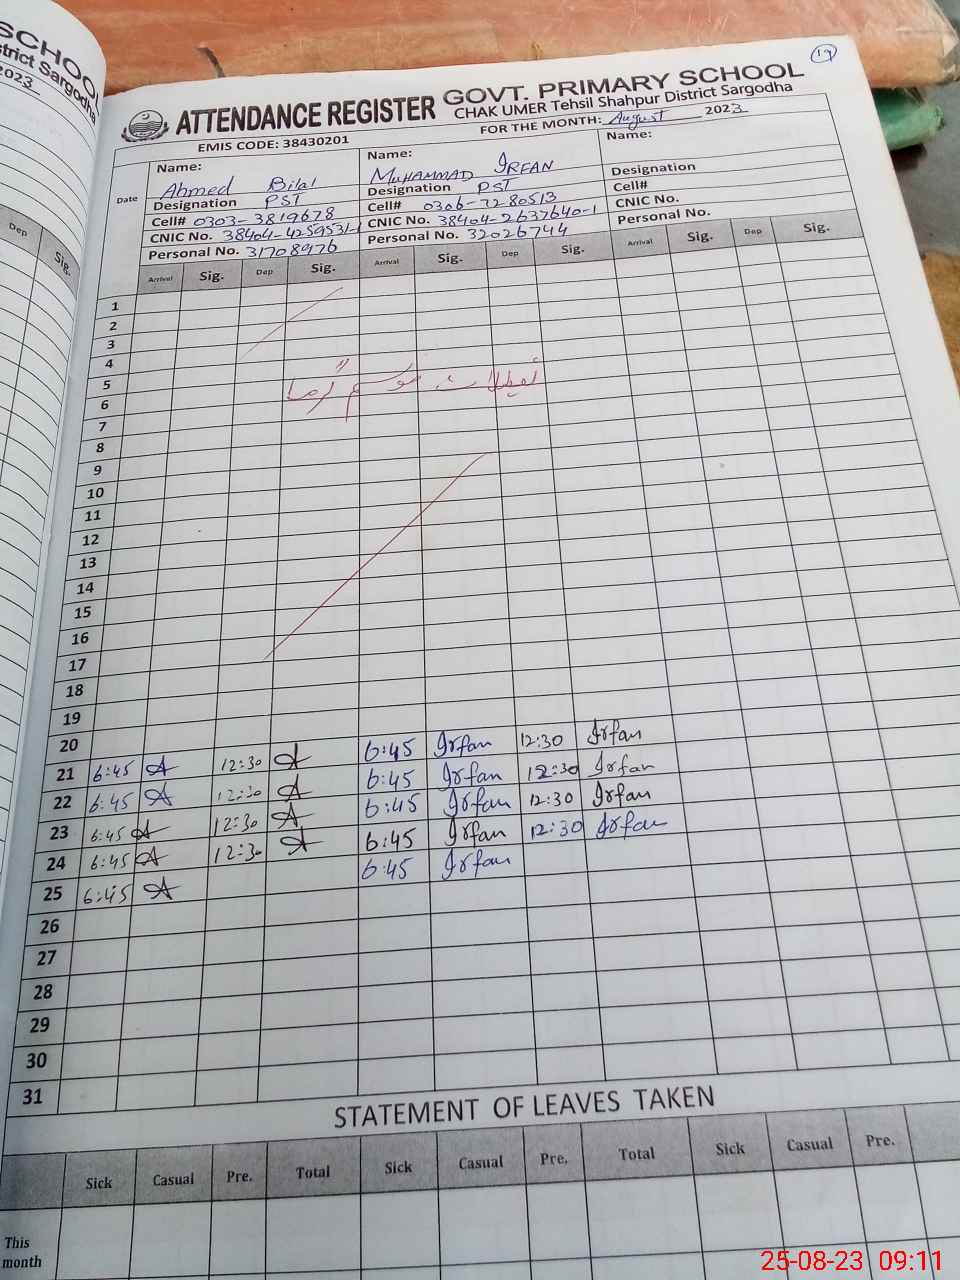 SCHOOL
strict Sargodha
2023
Dep Sig.
19
ATTENDANCE REGISTER GOVT. PRIMARY SCHOOL
CHAK UMER Tehsil Shahpur District Sargodha
EMIS CODE: 38430201 FOR THE MONTH: August 2023
Date Name: Name: Name:
Ahmed Bilal MUHAMMAD IRFAN
Designation PST Designation PST Designation
Cell# 0303-3819678 Cell# 0306-7280513 Cell#
CNIC No. 38404-4259531-1 CNIC No. 38404-2637640-1 CNIC No.
Personal No. 31708976 Personal No. 32026744 Personal No.
Arrival Sig. Dep Sig. Arrival Sig. Dep Sig. Arrival Sig. Dep Sig.
1
2
3
4
5
تعطیلات موسم گرما
6
7
8
9
10
11
12
13
14
15
16
17
18
19
20
21 6:45 A 12:30 A 6:45 Irfan 12:30 Irfan
22 6:45 A 12:30 A 6:45 Irfan 12:30 Irfan
23 6:45 A 12:30 A 6:45 Irfan 12:30 Irfan
24 6:45 A 12:30 A 6:45 Irfan 12:30 Irfan
25 6:45 A 6:45 Irfan
26
27
28
29
30
31
STATEMENT OF LEAVES TAKEN
Sick Casual Pre. Total Sick Casual Pre. Total Sick Casual Pre.
This
month
25-08-23 09:11